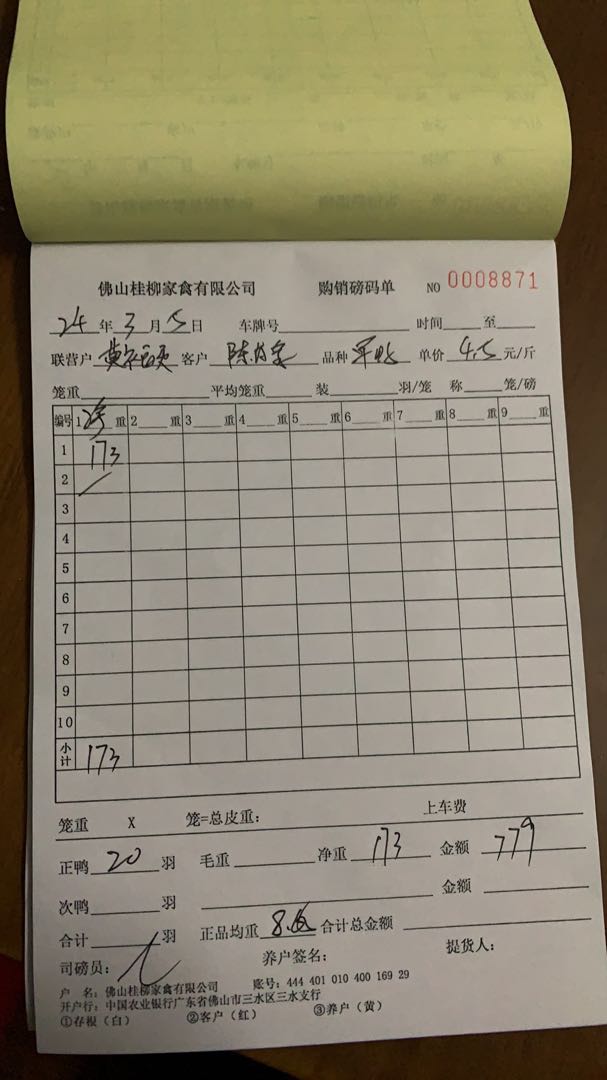 佛山桂柳家禽有限公司 购销磅码单 NO 0008871
24 年 3 月 5 日 车牌号 时间 至
联营户 客户 陈 品种 单价 4.5 元/斤
笼重 平均笼重 装 羽/笼 称 笼/磅
编号 1 净 重 2 重 3 重 4 重 5 重 6 重 7 重 8 重 9 重
1 173
2
3
4
5
6
7
8
9
10
小计 173
笼重 X 笼=总皮重: 上车费
正鸭 20 羽 毛重 净重 173 金额 779
次鸭 羽 金额
合计 羽 正品均重 合计总金额
司磅员: 养户签名: 提货人:
户 名: 佛山桂柳家禽有限公司 账号: 444 401 010 400 169 29
开户行: 中国农业银行广东省佛山市三水区三水支行
①存根(白) ②客户(红) ③养户(黄)